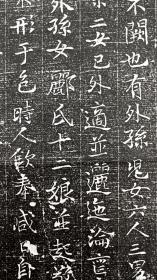 不闕也有外孫児女六人三男
二女已外適並灑迤淪
外孫女酈氏十二娘並
形于色時人欽奉咸自